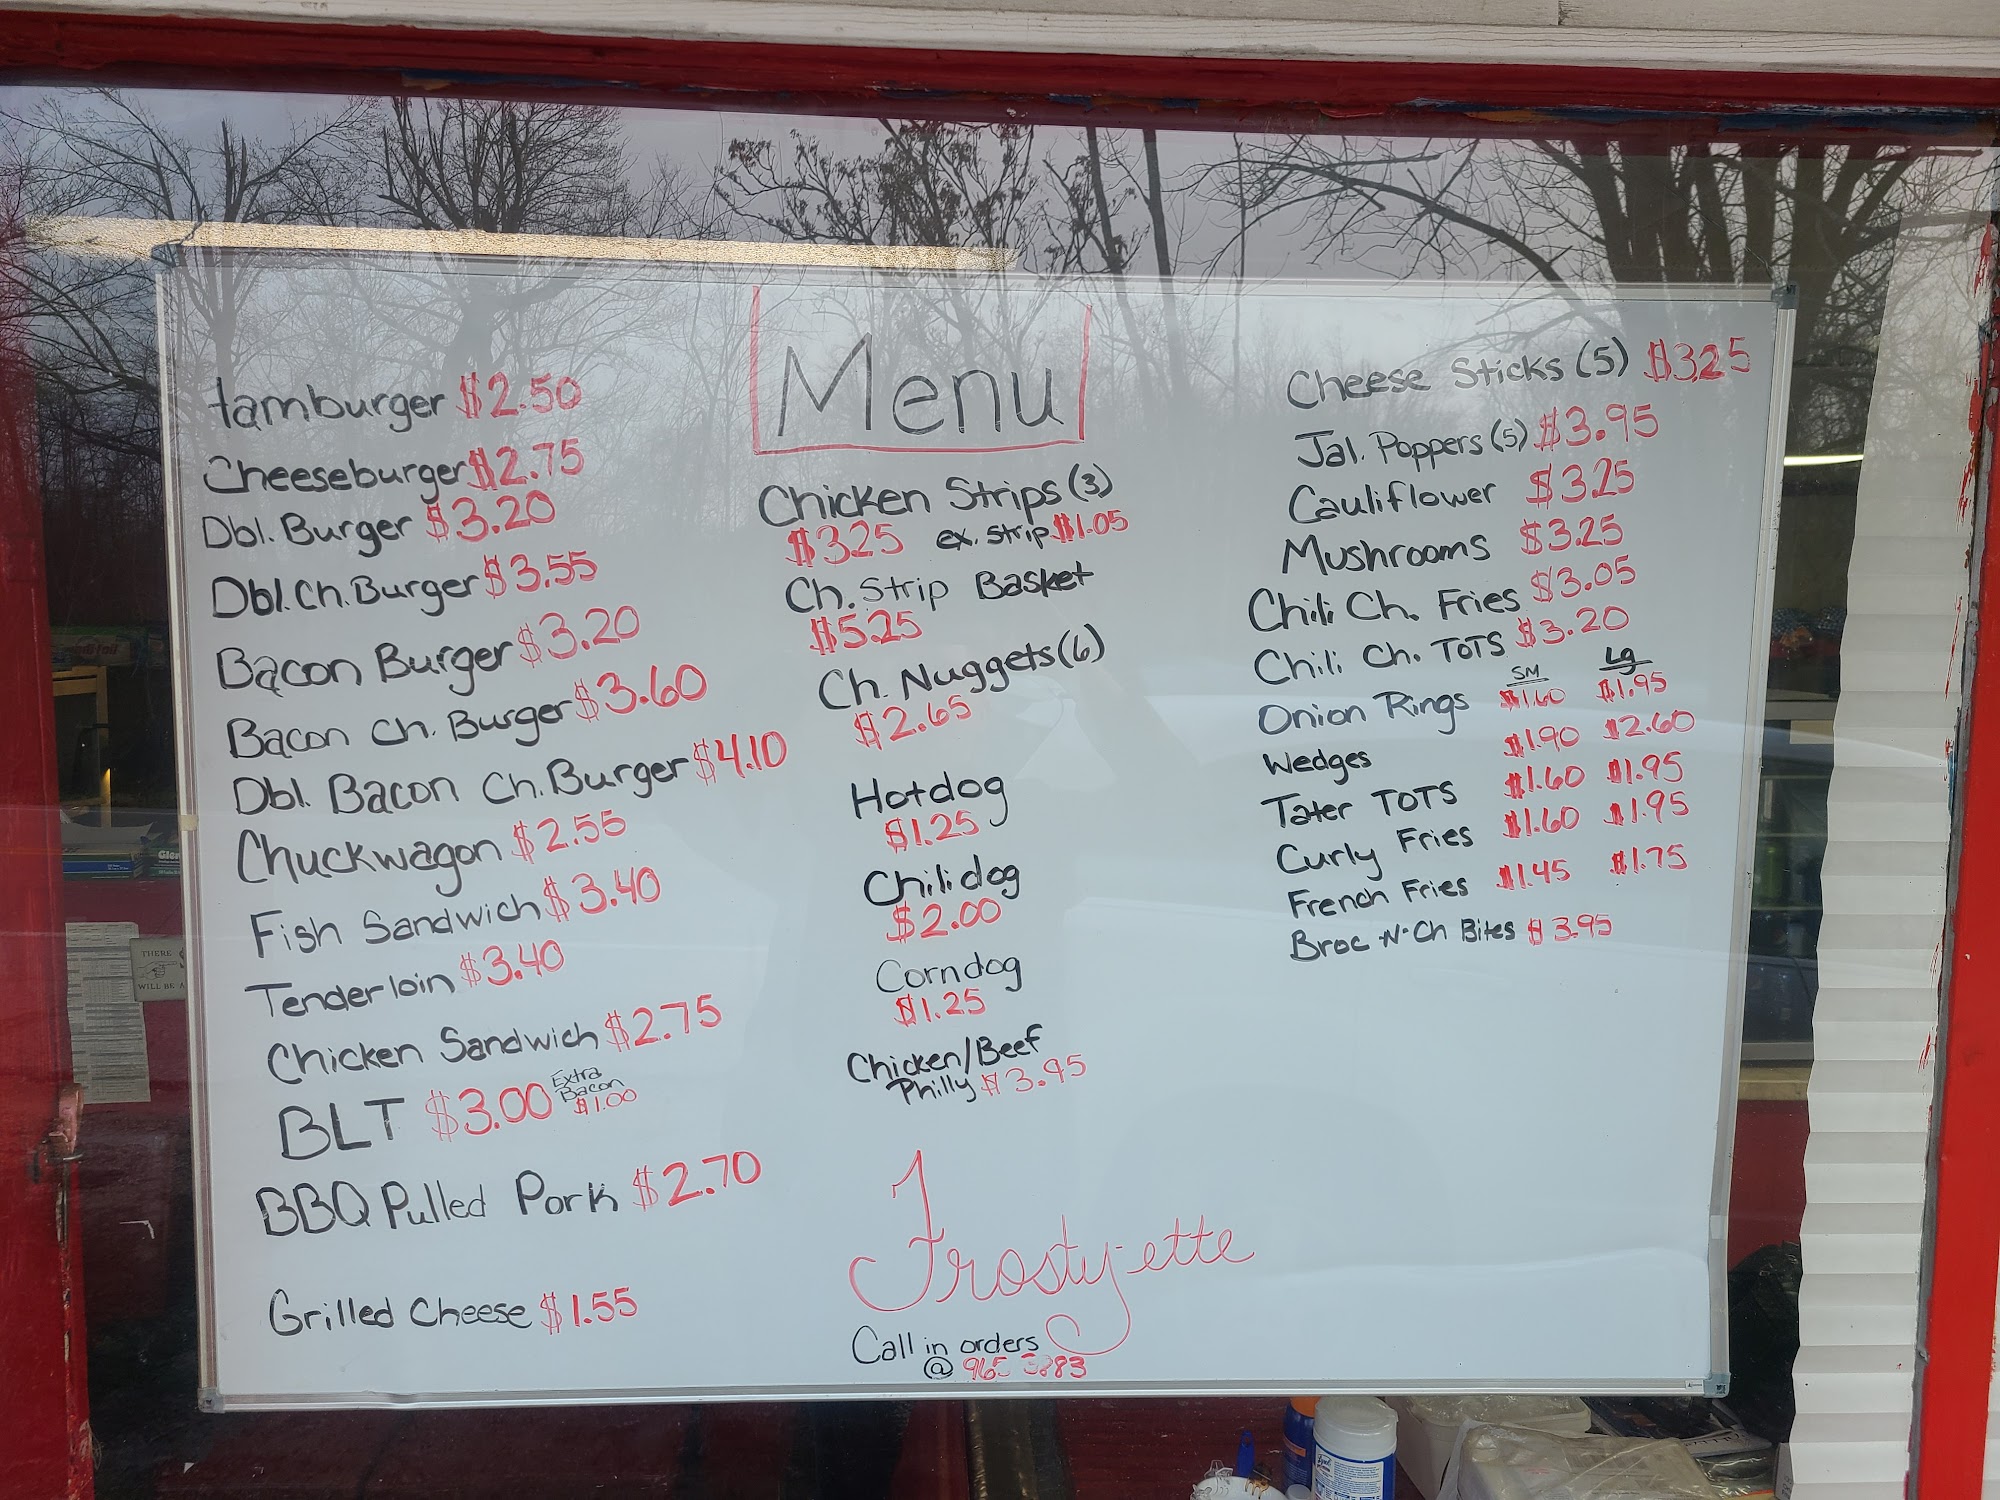 Menu
Hamburger $2.50
Cheeseburger $2.75
Dbl. Burger $3.20
Dbl. Ch. Burger $3.55
Bacon Burger $3.20
Bacon Ch. Burger $3.60
Dbl. Bacon Ch. Burger $4.10
Chuckwagon $2.55
Fish Sandwich $3.40
Tenderloin $3.40
Chicken Sandwich $2.75
BLT $3.00 Extra Bacon $1.00
BBQ Pulled Pork $2.70
Grilled Cheese $1.55
Chicken Strips (3)
$3.25 ex. strip $1.05
Ch. Strip Basket
$5.25
Ch. Nuggets (6)
$2.65
Hotdog
$1.25
Chilidog
$2.00
Corndog
$1.25
Chicken/Beef
Philly $3.95
Frosty-ette
Call in orders
@ 965 3883
Cheese Sticks (5) $3.25
Jal. Poppers (5) $3.95
Cauliflower $3.25
Mushrooms $3.25
Chili Ch. Fries $3.05
Chili Ch. TOTS $3.20
SM Lg
Onion Rings $1.60 $1.95
Wedges $1.90 $2.60
Tater TOTS $1.60 $1.95
Curly Fries $1.60 $1.95
French Fries $1.45 $1.75
Broc-N-Ch Bites $3.95
THERE
WILL BE A